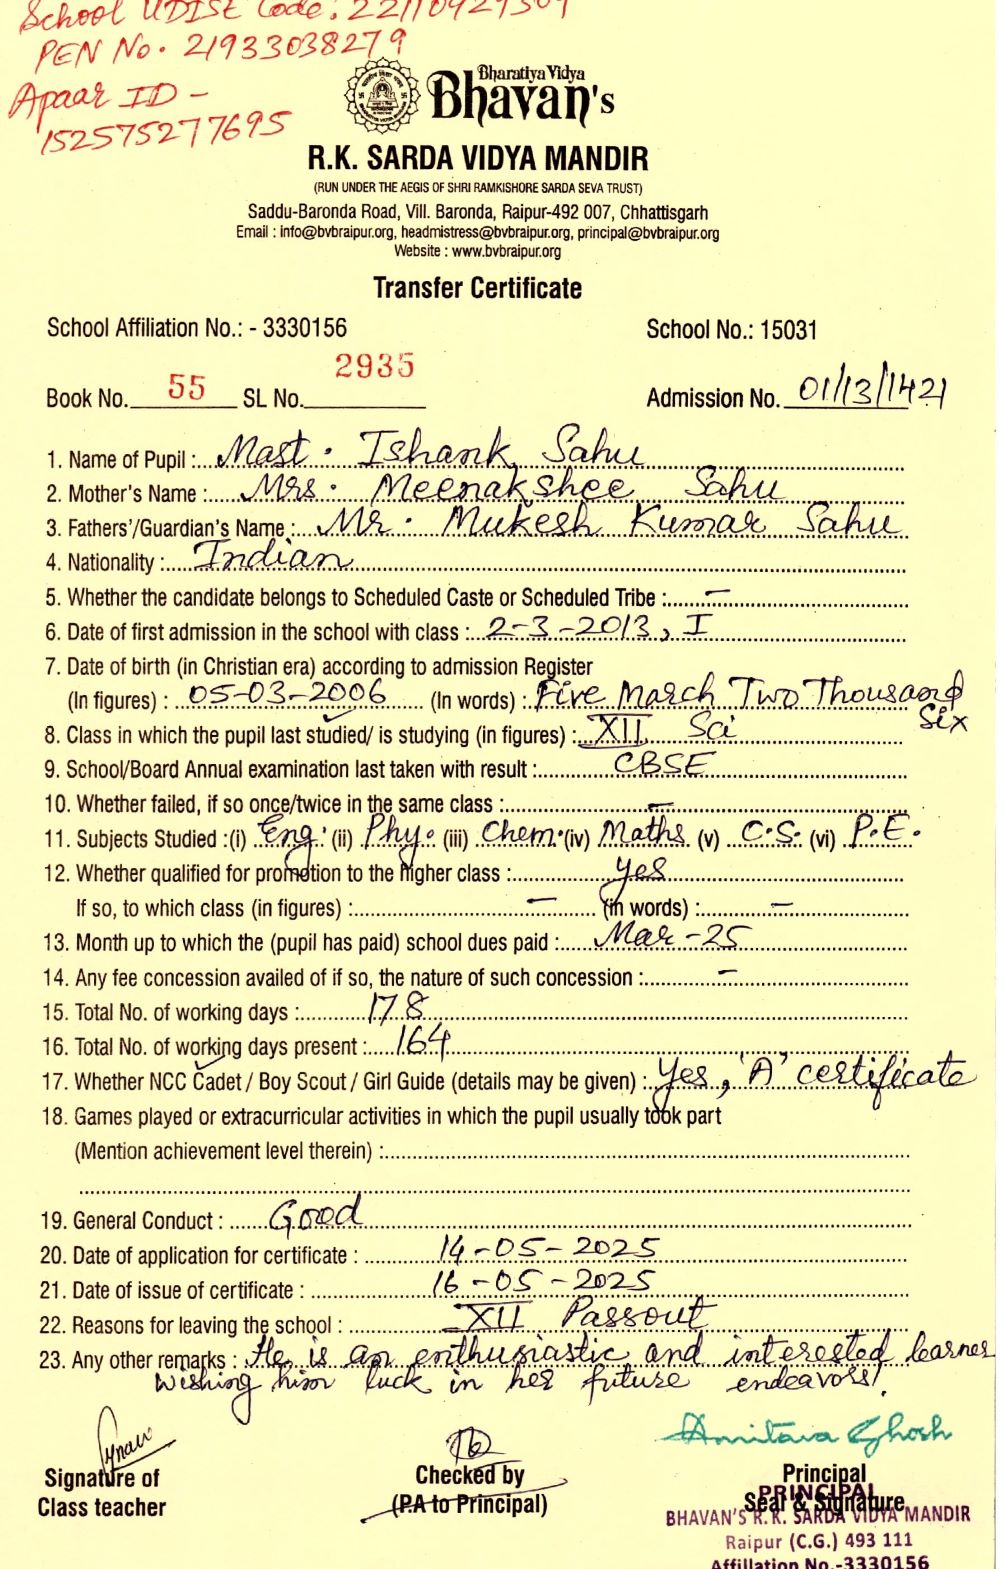 School UDISE Code: 22110927309
PEN No. 21933038279
Apaar ID -
152575277695
Bharatiya Vidya
Bhavan's
R.K. SARDA VIDYA MANDIR
(RUN UNDER THE AEGIS OF SHRI RAMKISHORE SARDA SEVA TRUST)
Saddu-Baronda Road, Vill. Baronda, Raipur-492 007, Chhattisgarh
Email : info@bvbraipur.org, headmistress@bvbraipur.org, principal@bvbraipur.org
Website : www.bvbraipur.org
Transfer Certificate
School Affiliation No.: - 3330156 School No.: 15031
Book No. 55 SL No. 2935 Admission No. 01/13/1421
1. Name of Pupil : Mast. Ishank Sahu
2. Mother's Name : Mrs. Meenakshee Sahu
3. Fathers'/Guardian's Name : Mr. Mukesh Kumar Sahu
4. Nationality : Indian
5. Whether the candidate belongs to Scheduled Caste or Scheduled Tribe : -
6. Date of first admission in the school with class : 2-3-2013, I
7. Date of birth (in Christian era) according to admission Register
(In figures) : 05-03-2006 (In words) : Five March Two Thousand Six
8. Class in which the pupil last studied/ is studying (in figures) : XII Sci
9. School/Board Annual examination last taken with result : CBSE
10. Whether failed, if so once/twice in the same class : -
11. Subjects Studied :(i) Eng. (ii) Phy. (iii) Chem. (iv) Maths (v) C.S. (vi) P.E.
12. Whether qualified for promotion to the higher class : Yes
If so, to which class (in figures) : - (in words) : -
13. Month up to which the (pupil has paid) school dues paid : Mar-25
14. Any fee concession availed of if so, the nature of such concession : -
15. Total No. of working days : 178
16. Total No. of working days present : 164
17. Whether NCC Cadet / Boy Scout / Girl Guide (details may be given) : Yes, 'A' certificate
18. Games played or extracurricular activities in which the pupil usually took part
(Mention achievement level therein) :
19. General Conduct : Good
20. Date of application for certificate : 14-05-2025
21. Date of issue of certificate : 16-05-2025
22. Reasons for leaving the school : XII Passout
23. Any other remarks : He is an enthusiastic and interested learner
Wishing him luck in her future endeavors!
Amitava Ghosh
Signature of Checked by Principal
Class teacher (P.A to Principal) Seal & Signature
PRINCIPAL
BHAVAN'S R.K. SARDA VIDYA MANDIR
Raipur (C.G.) 493 111
Affiliation No.-3330156